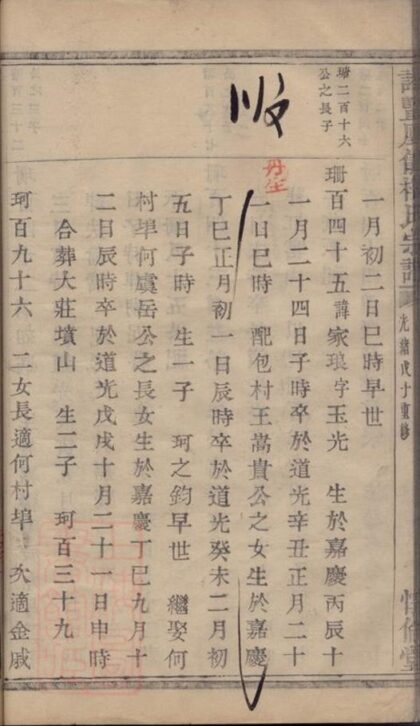 光緒戊子重修
惇倫堂
塘二百十六
公之長子
一月初二日巳時早世
珊百四十五諱家琅字玉光 生於嘉慶丙辰十
一月二十四日子時卒於道光辛丑正月二十
一日巳時 配包村王嵩貴公之女生於嘉慶
丁巳正月初一日辰時卒於道光癸未二月初
五日子時 生一子 珂之鈞早世 繼娶何
村埠何虞岳公之長女生於嘉慶丁巳九月十
二日辰時卒於道光戊戌十月二十一日申時
合葬大莊墳山 生二子 珂百三十九
珂百九十六 二女長適何村埠 次適金戚